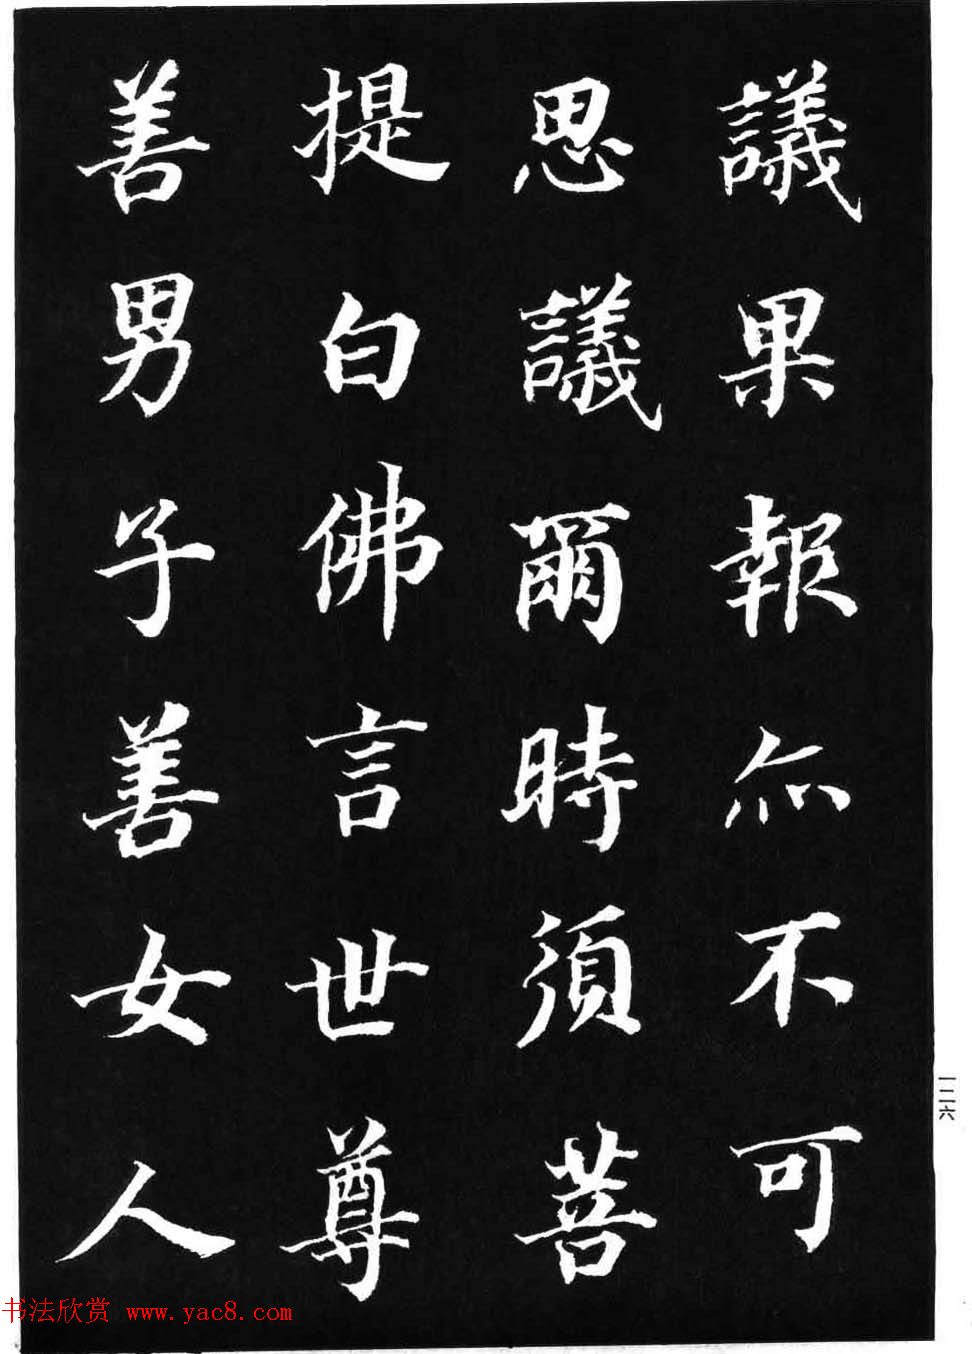 議果報亦不可
思議爾時須菩
提白佛言世尊
善男子善女人
一二六
书法欣赏 www.yac8.com